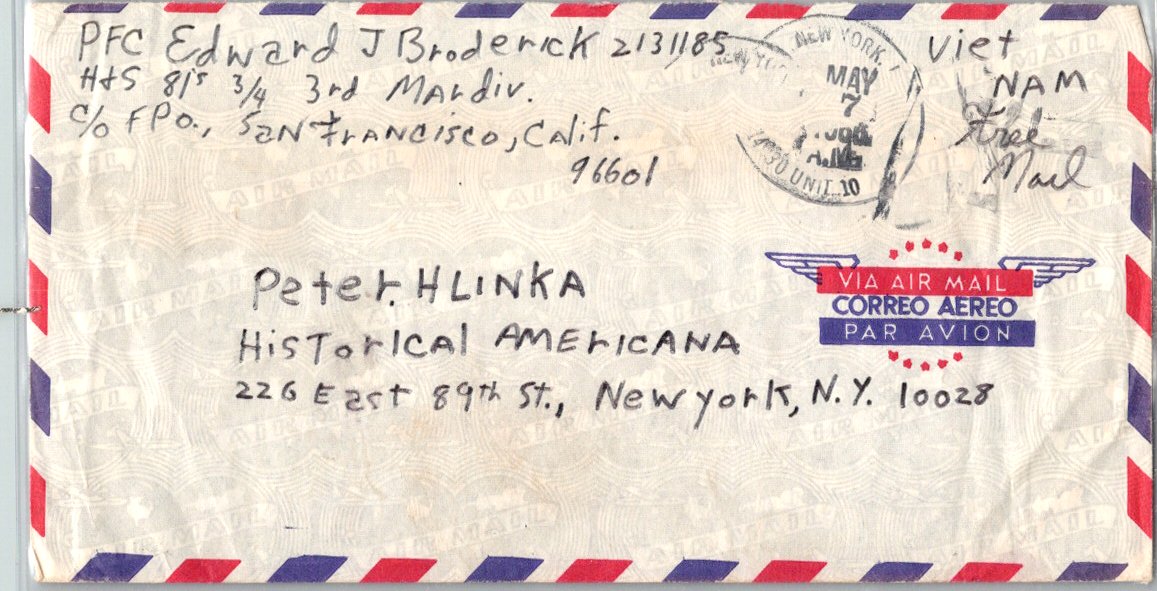 PFC Edward J Broderick 2131185
H+S 81's 3/4 3rd Mardiv.
c/o FPO., San Francisco, Calif.
96601
NEW YORK,
MAY
7
A.M.
UNIT 10
Viet
NAM
Free
Mail
Peter HLINKA
HisTorical AMERICANA
226 East 89th St., New York, N.Y. 10028
VIA AIR MAIL
CORREO AEREO
PAR AVION